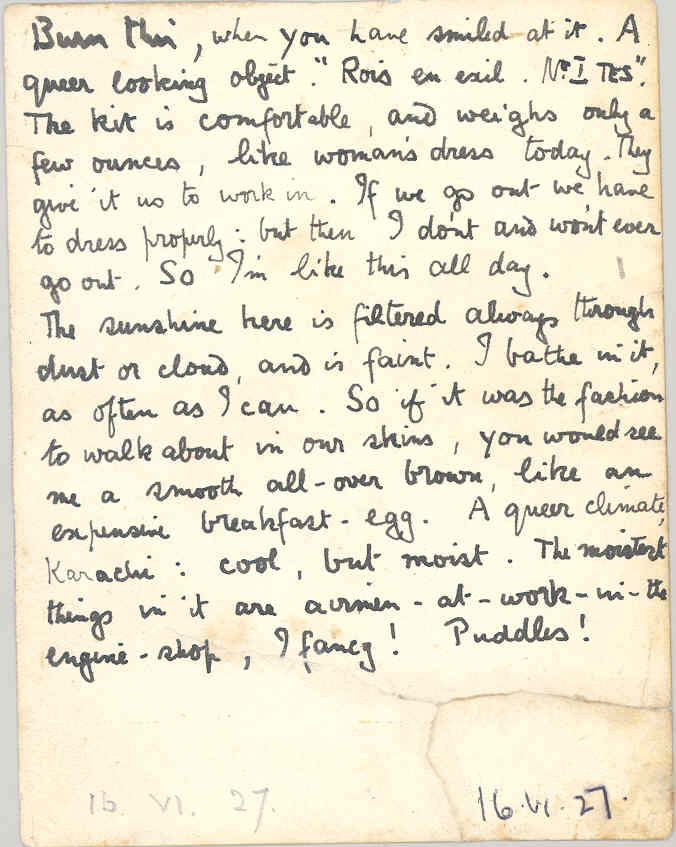 Burn this, when you have smiled at it. A
queer looking object. "Rois en exil. No I TES".
The kit is comfortable, and weighs only a
few ounces, like woman's dress today. They
give it us to work in. If we go out we have
to dress properly: but then I don't and won't ever
go out. So I'm like this all day.
The sunshine here is filtered always through
dust or cloud, and is faint. I bathe in it,
as often as I can. So if it was the fashion
to walk about in our skins, you would see
me a smooth all-over brown, like an
expensive breakfast-egg. A queer climate,
Karachi: cool, but moist. The moistest
things in it are airmen-at-work-in-the
engine-shop, I fancy! Puddles!
16. VI. 27.
16.VI.27.